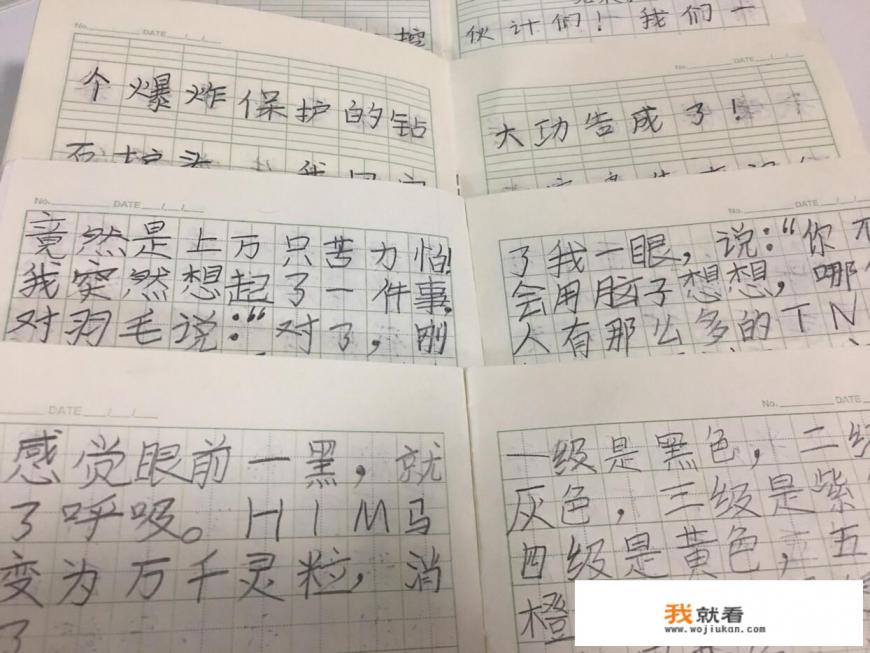 伙计们！我们一
No. DATE / /
个爆炸保护的钻
No. DATE / /
大功告成了！
No. DATE / /
竟然是上万只苦力怕！
我突然想起了一件事，
对羽毛说：“对了，刚
No. DATE / /
了我一眼，说：“你不
会用脑子想想，哪
人有那么多的TN
DATE / /
感觉眼前一黑，就
了呼吸。HIM马
变为万千灵粒，消
了
No. DATE
一级是黑色，二级
灰色，三级是紫
四级是黄色，五
橙
我就看
www.wojiukan.com